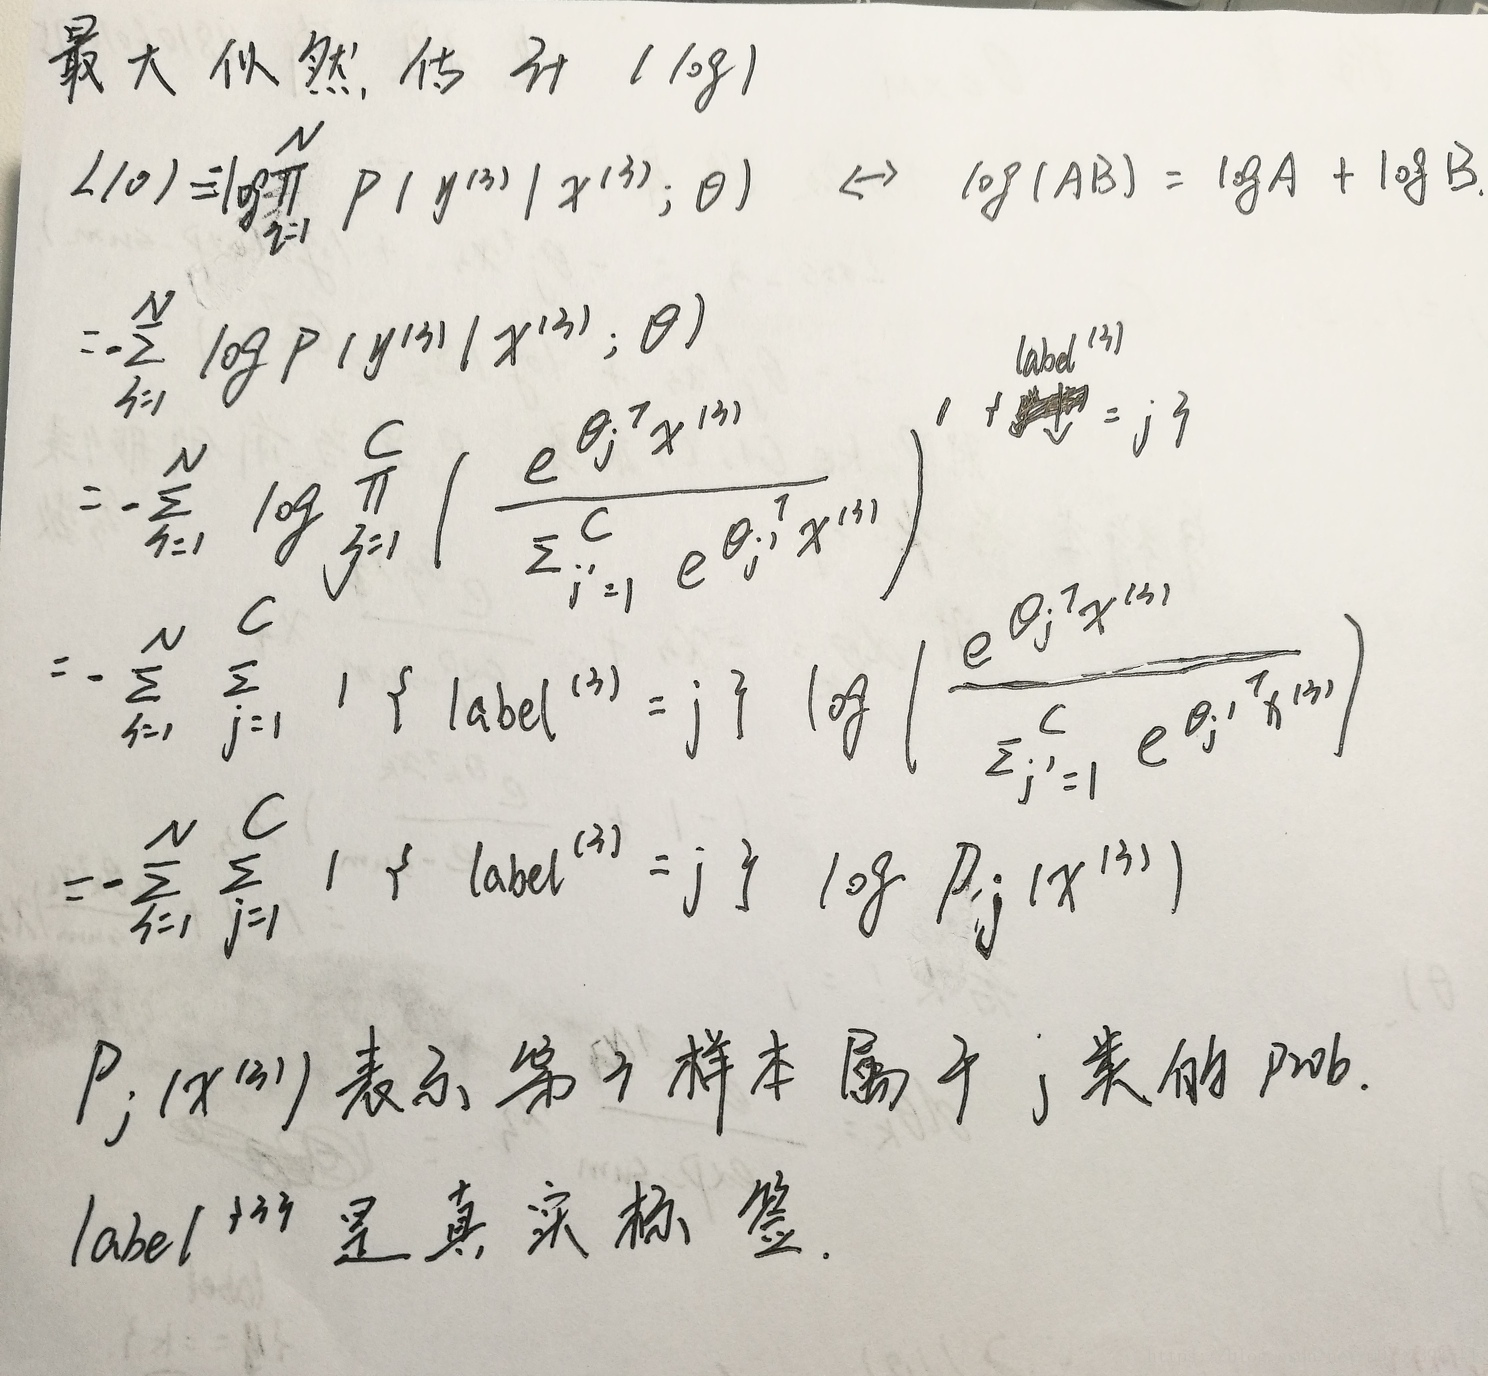 最大似然估计 (log)
L(θ) = log ∏_{i=1}^{N} P(y^{(i)} | x^{(i)}; θ) ↔ log(AB) = logA + logB.
= -∑_{i=1}^{N} log P(y^{(i)} | x^{(i)}; θ)
= -∑_{i=1}^{N} log ∏_{j=1}^{C} ( e^{θ_j^T x^{(i)}} / ∑_{j'=1}^{C} e^{θ_{j'}^T x^{(i)}} )^{1{label^{(i)} = j}}
= -∑_{i=1}^{N} ∑_{j=1}^{C} 1{label^{(i)} = j} log( e^{θ_j^T x^{(i)}} / ∑_{j'=1}^{C} e^{θ_{j'}^T x^{(i)}} )
= -∑_{i=1}^{N} ∑_{j=1}^{C} 1{label^{(i)} = j} log P_j(x^{(i)})
P_j(x^{(i)}) 表示第 i 样本属于 j 类的 prob.
label^{(i)} 是真实标签.